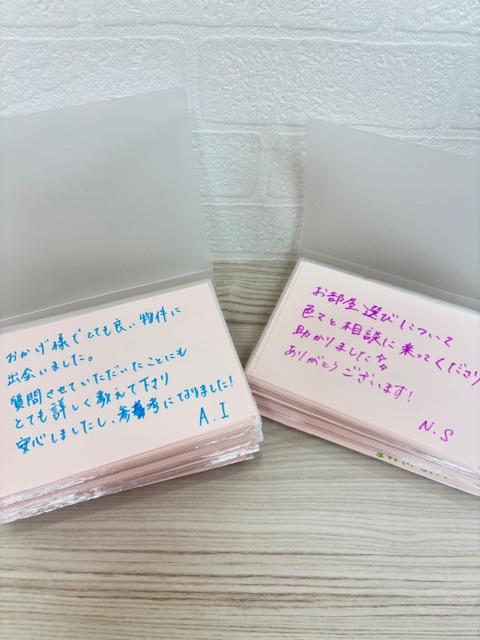 おかげ様でとても良い物件に
出会いました。
質問させていただいたことにも
とても詳しく教えて下さり
安心しましたし、参考になりました!
A.I
お部屋選びについて
色々と相談に乗ってくださり
助かりました
ありがとうございます!
N.S